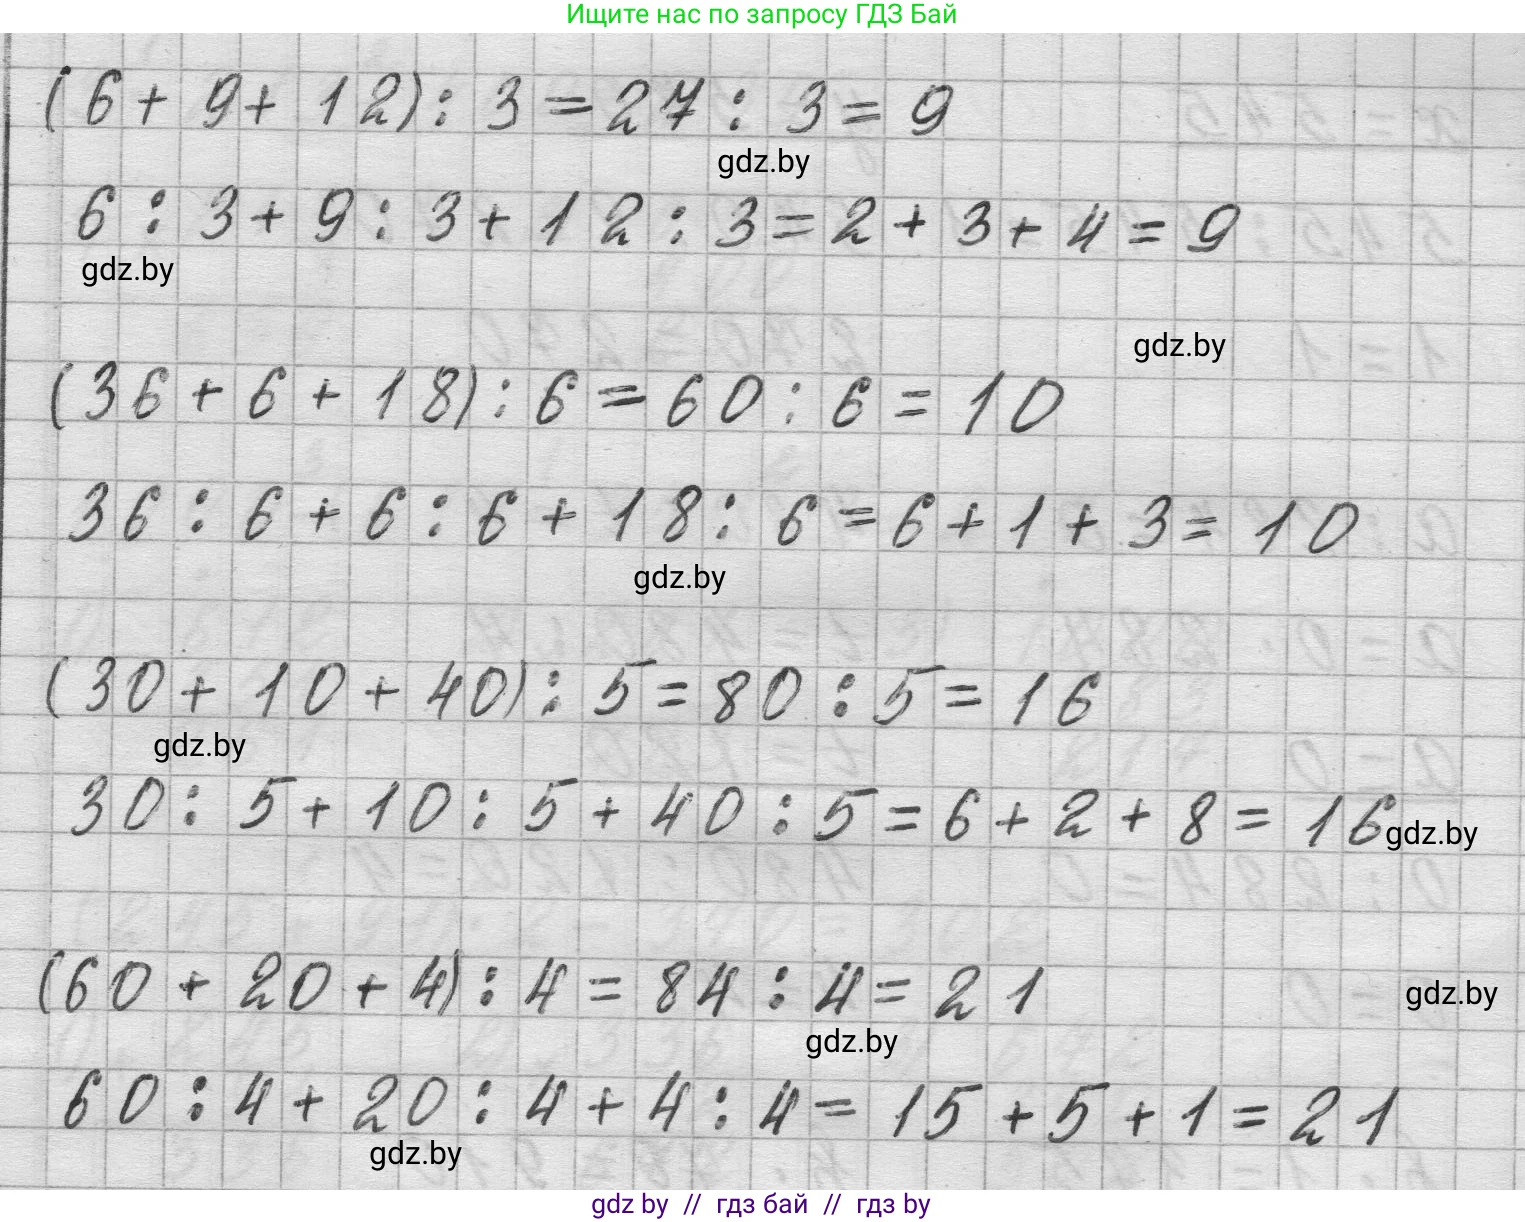 Ищите нас по запросу ГДЗ Бай
(6+9+12):3=27:3=9
gdz.by
6:3+9:3+12:3=2+3+4=9
gdz.by
gdz.by
(36+6+18):6=60:6=10
36:6+6:6+18:6=6+1+3=10
gdz.by
(30+10+40):5=80:5=16
gdz.by
30:5+10:5+40:5=6+2+8=16
gdz.by
(60+20+4):4=84:4=21
gdz.by
gdz.by
60:4+20:4+4:4=15+5+1=21
gdz.by
gdz by // гдз бай // гдз by